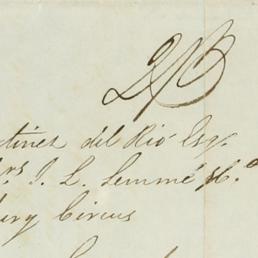 2/B
tinez del Rio Esq.
rs J. L. Lemmé & Co
bury Circus